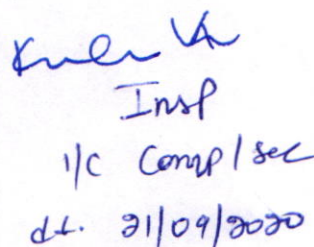 Insp
I/C Comp/sec
dt. 21/09/2020